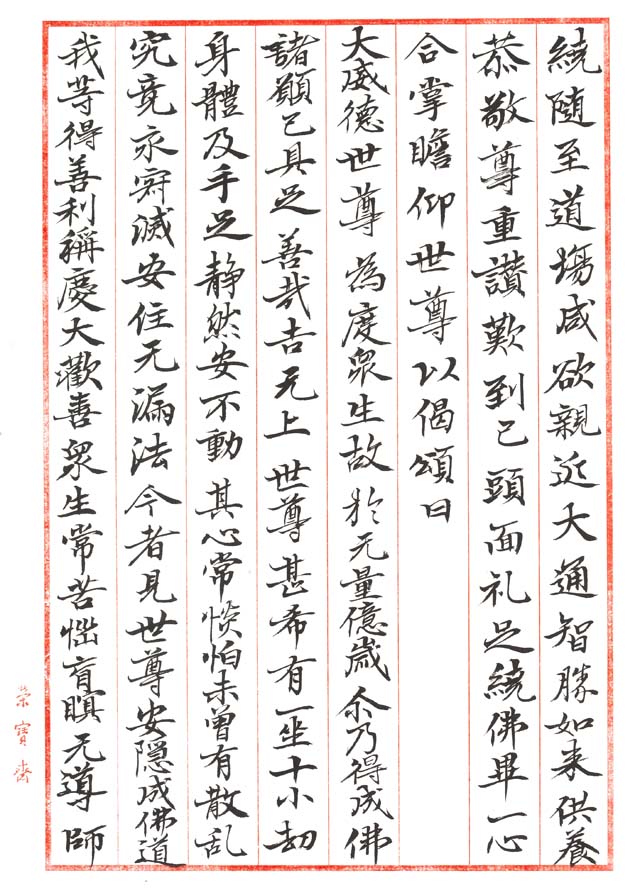 繞随至道場咸欲親近大通智勝如来供養
恭敬尊重讃歎到已頭面礼足繞佛畢一心
合掌瞻仰世尊以偈頌曰
大威德世尊為度衆生故於无量億歲尒乃得成佛
諸願已具足善哉吉无上世尊甚希有一坐十小劫
身體及手足静然安不動其心常惔怕未曾有散乱
究竟永寂滅安住无漏法今者見世尊安隠成佛道
我等得善利稱慶大歡喜衆生常苦惱盲瞑无導師
榮寶齋